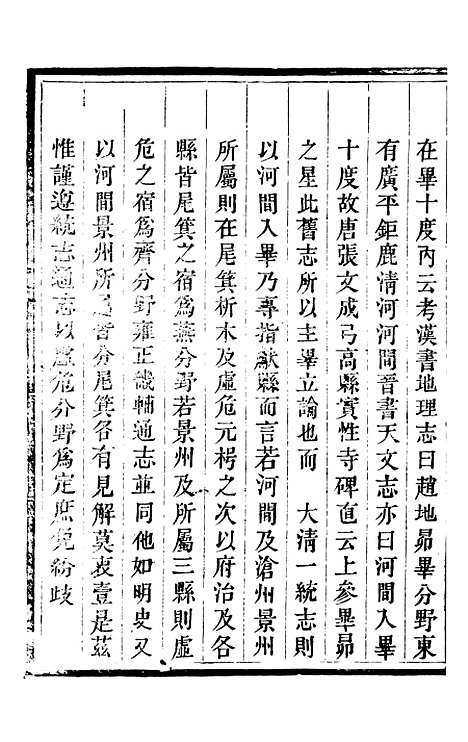 在畢十度內云考漢書地理志曰趙地昴畢分野東
有廣平鉅鹿清河河間晉書天文志亦曰河間入畢
十度故唐張文成弓高縣實性寺碑直云上參畢昴
之星此舊志所以主畢立論也而　大清一統志則
以河間入畢乃專指獻縣而言若河間及滄州景州
所屬則在尾箕析木及虛危元枵之次以府治及各
縣皆尾箕之宿為燕分野若景州及所屬三縣則虛
危之宿為齊分野雍正畿輔通志並同他如明史又
以河間景州所屬皆分尾箕各有見解莫衷壹是茲
惟謹遵統志通志以虛危分野為定庶免紛歧